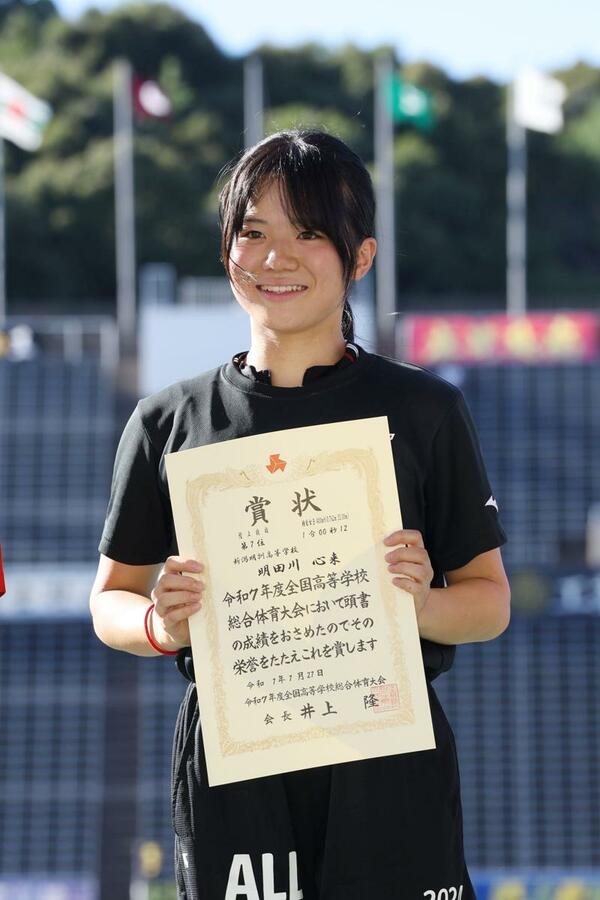 賞状
陸上競技
第7位
1分00秒12
新潟明訓高等学校
明田川 心来
令和7年度全国高等学校
総合体育大会において頭書
の成績をおさめたのでその
栄誉をたたえこれを賞します
令和7年7月27日
令和7年度全国高等学校総合体育大会
会長 井上 隆
ALL
202